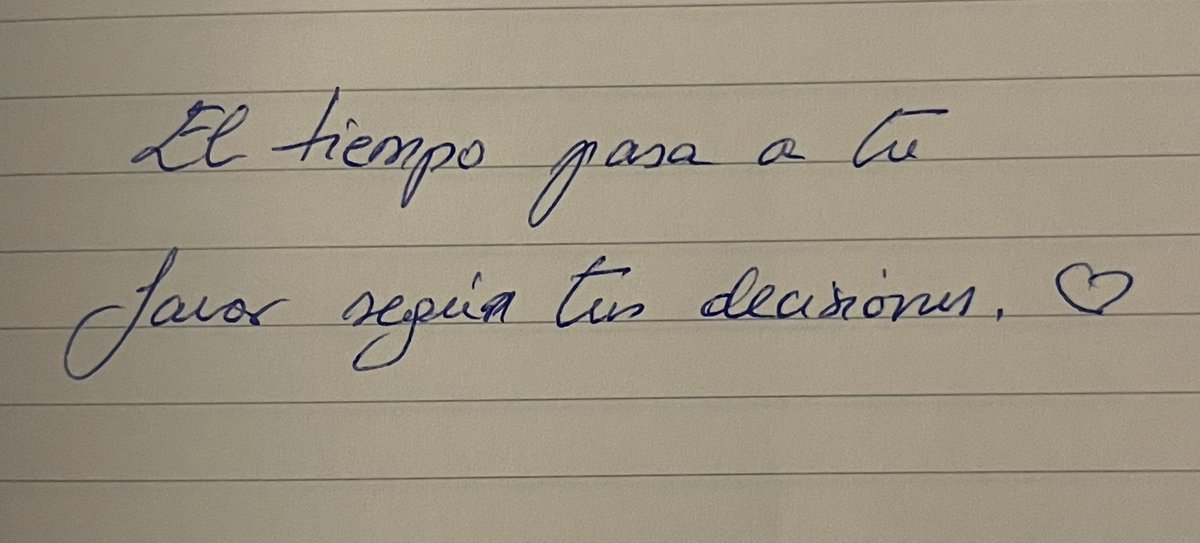 El tiempo pasa a tu
favor según tus decisiones. ♡